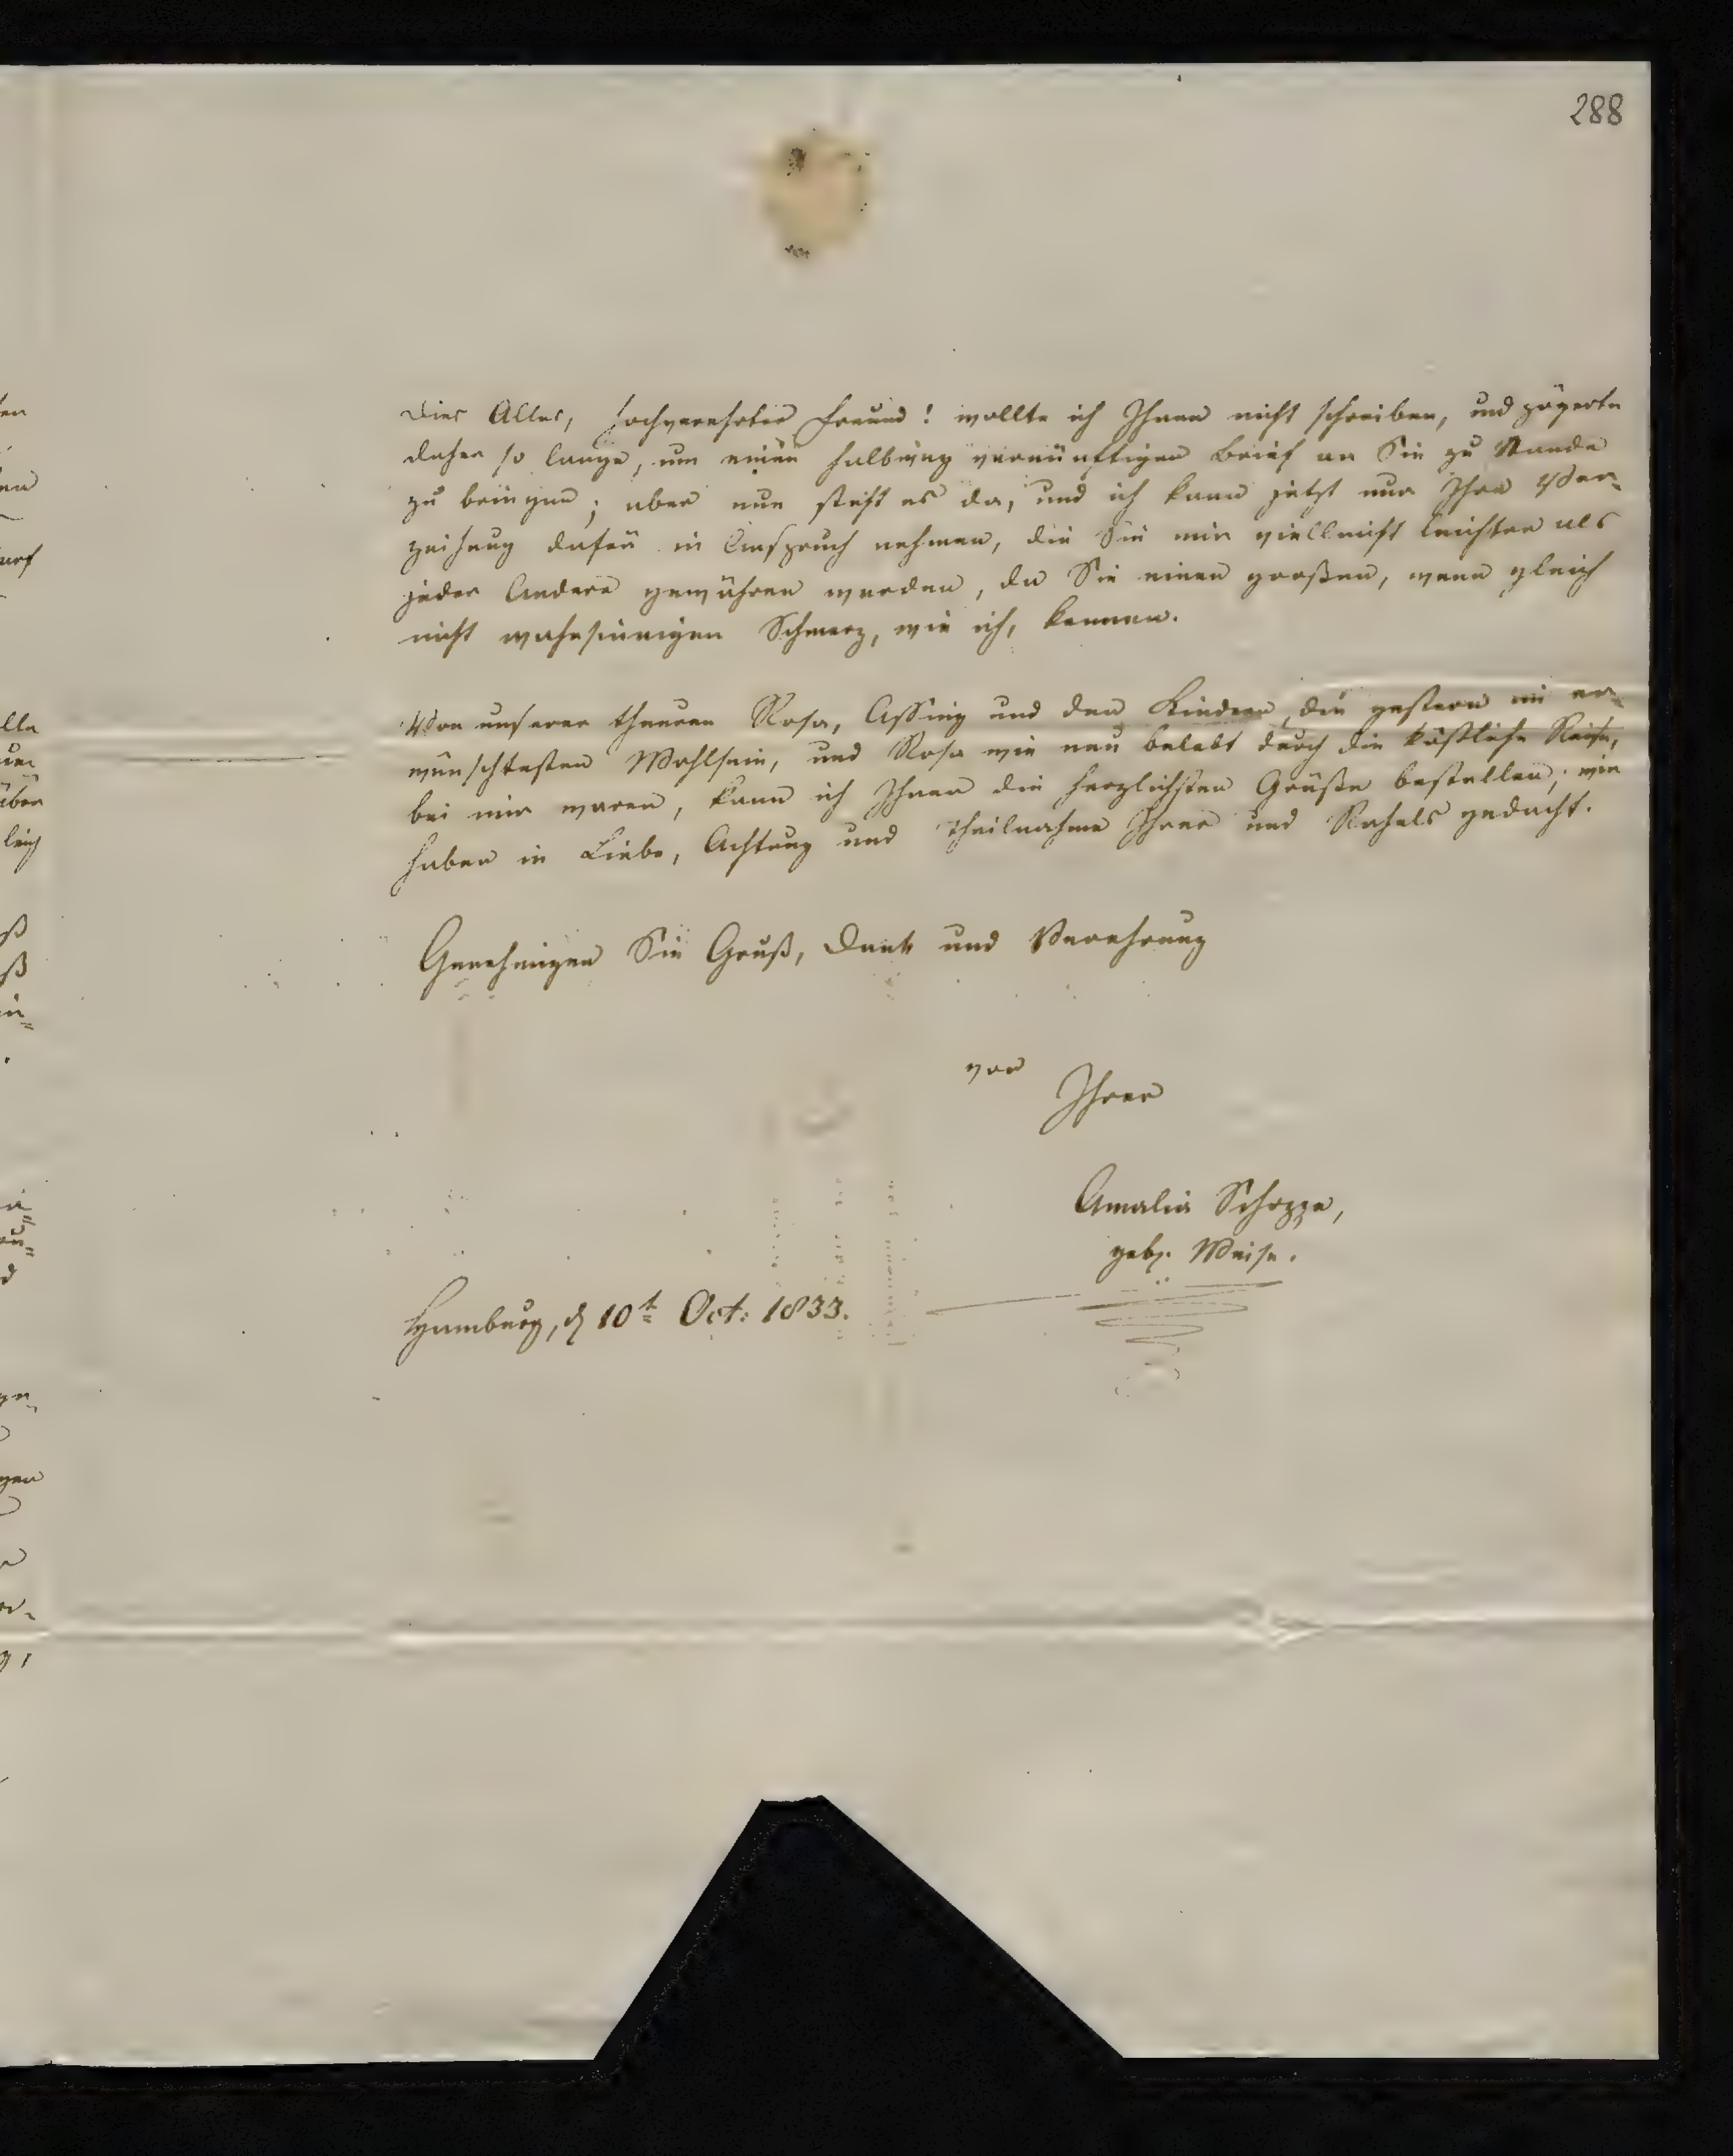 288
Dies Alles, hochverehrter Freund! wollte ich Ihnen nicht schreiben, und zögerte
daher so lange, um einen halbweg vernünftigen Brief an Sie zu Stande
zu bringen; aber nun steht es da, und ich kann jetzt nur Ihre Ver-
zeihung dafür in Anspruch nehmen, die Sie mir vielleicht leichter als
jeder Andere gewähren werden, da Sie einen großen, wenn gleich
nicht wahnsinnigen Schmerz, wie ich, kennen.
Von unserer theuren Rosa, Assing und den Kindern, die gestern im er-
wünschtesten Wohlsein, und Rosa wie neu belebt durch die köstliche Reise,
bei mir waren, kann ich Ihnen die herzlichsten Grüße bestellen; wir
haben in Liebe, Achtung und Theilnahme Ihrer und Rahels gedacht.
Genehmigen Sie Gruß, Dank und Verehrung
von
Ihrer
Amalia Schoppe,
geb. Weise.
Hamburg, d 10t Oct: 1833.